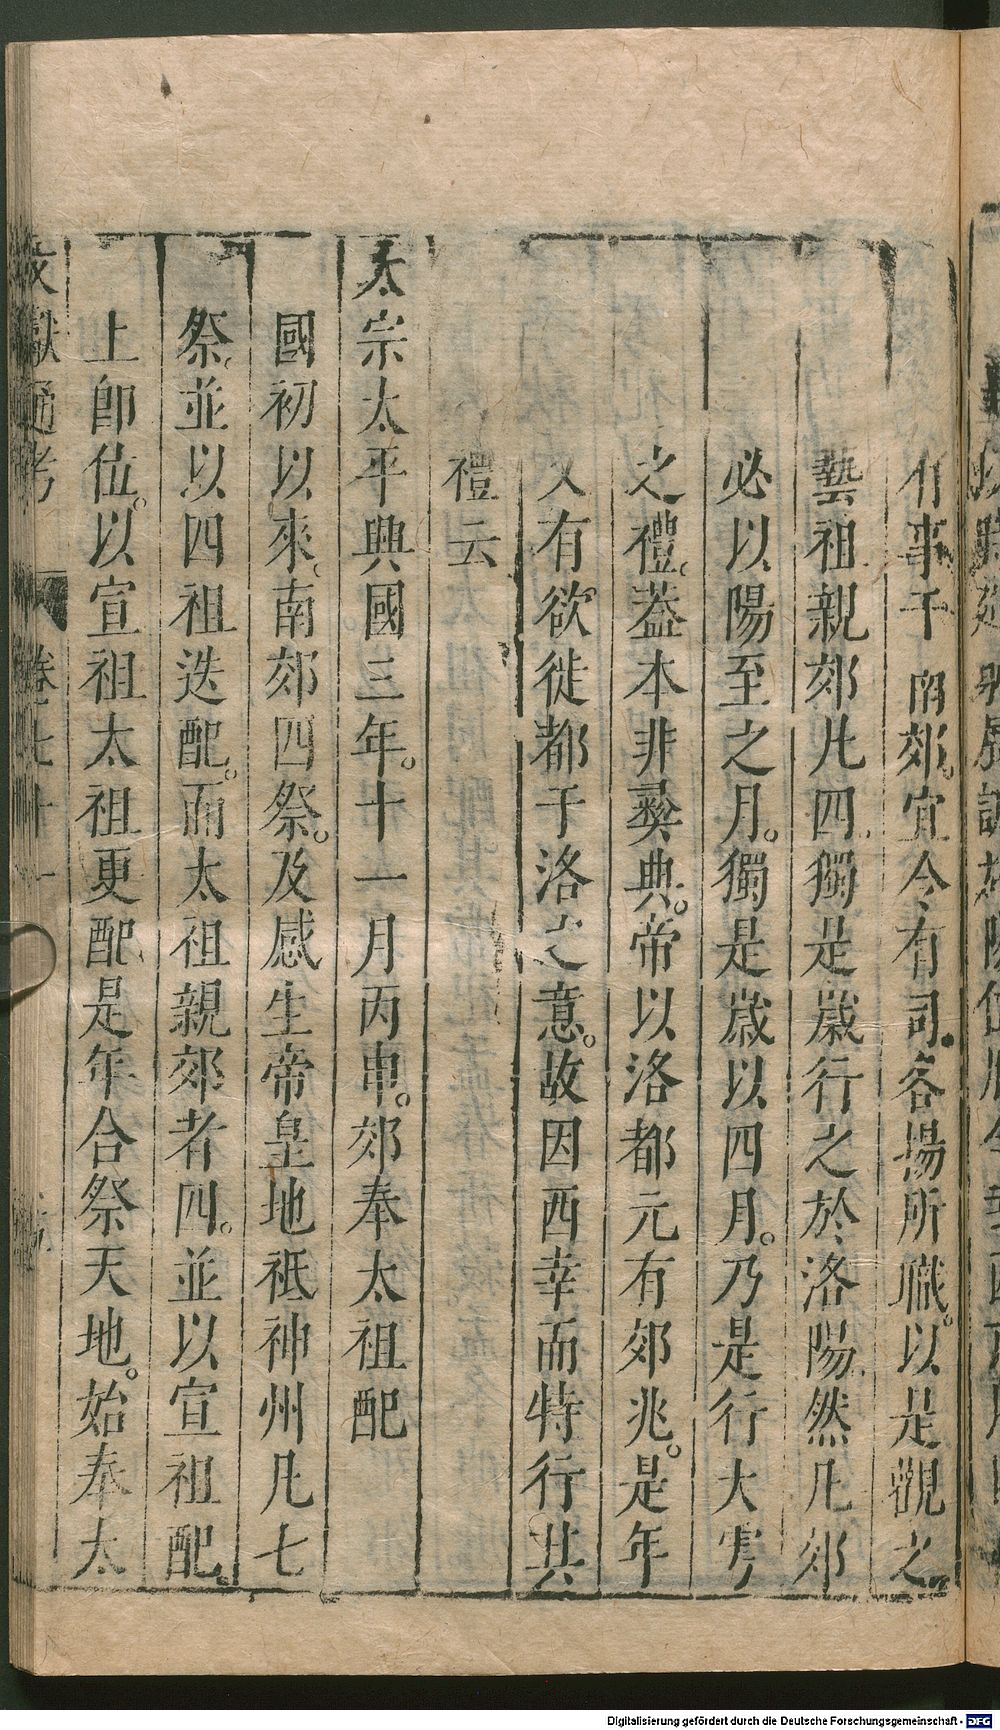 有事于　南郊。宜令有司。各揚所職。以是觀之
藝祖親郊凡四獨是歲行之於洛陽然凡郊
必以陽至之月。獨是歲以四月。乃是行大雩
之禮。葢本非彞典。帝以洛都元有郊兆。是年
又有欲徙都于洛之意。故因西幸而特行其
禮云
太宗太平興國三年。十一月丙申。郊奉太祖配
國初以來。南郊四祭。及感生帝皇地祗神州凡七
祭。並以四祖迭配。而太祖親郊者四。並以宣祖配。
上卽位。以宣祖太祖更配是年合祭天地。始奉太
文獻通考　卷七十一
Digitalisierung gefördert durch die Deutsche Forschungsgemeinschaft - DFG